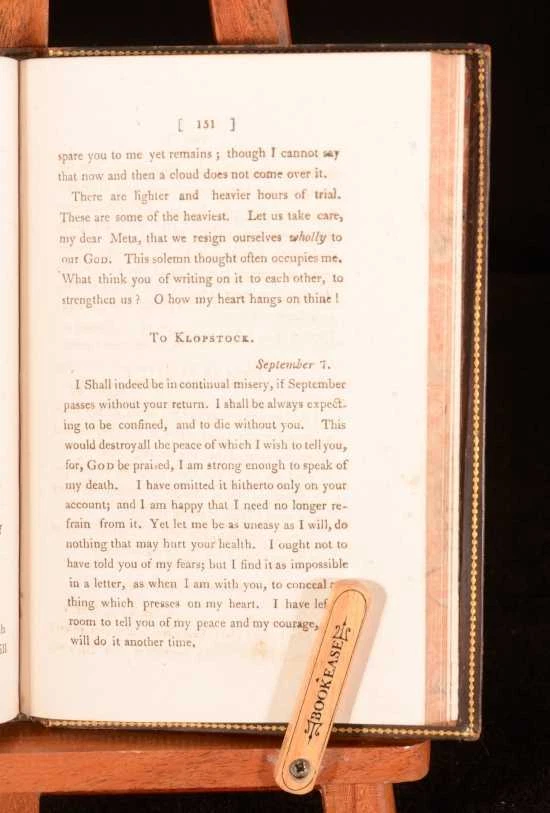 [ 151 ]
spare you to me yet remains ; though I cannot say
that now and then a cloud does not come over it.
There are lighter and heavier hours of trial.
These are some of the heaviest. Let us take care,
my dear Meta, that we resign ourselves wholly to
our GOD. This solemn thought often occupies me.
What think you of writing on it to each other, to
strengthen us ? O how my heart hangs on thine !
TO KLOPSTOCK.
September 7.
I Shall indeed be in continual misery, if September
passes without your return. I shall be always expect-
ing to be confined, and to die without you. This
would destroy all the peace of which I wish to tell you,
for, GOD be praised, I am strong enough to speak of
my death. I have omitted it hitherto only on your
account; and I am happy that I need no longer re-
frain from it. Yet let me be as uneasy as I will, do
nothing that may hurt your health. I ought not to
have told you of my fears; but I find it as impossible
in a letter, as when I am with you, to conceal
thing which presses on my heart. I have lef
room to tell you of my peace and my courage,
will do it another time.
BOOKEASE
ill